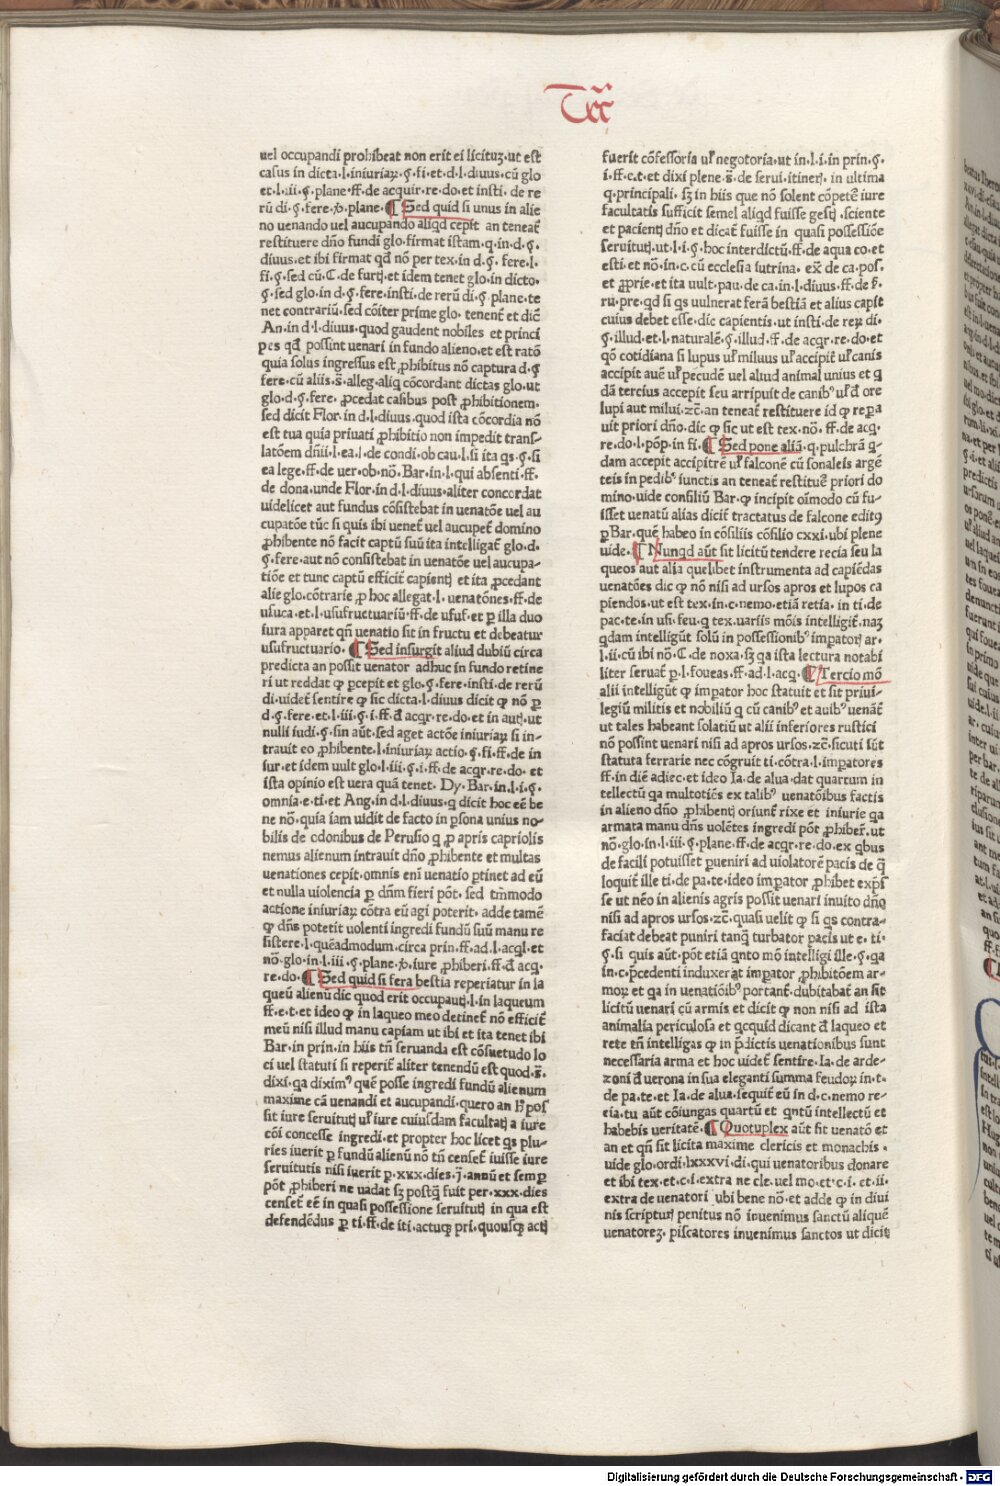 uel occupandi prohibeat non erit ei licituꝫ·ut est
casus in dicta·l·iniuriaꝝ·§·fi·et·d·l·diuus·cū glo
et·l·iii·§·plane·ff·de acquir·re·do·et insti· de re
rū di·§·fere·ꝟ·plane· ¶ Sed quid si unus in alie
no uenando uel aucupando aliqd cepit an teneat᷑
restituere dn̄o fundi glo·firmat istam·q·in·d·§·
diuus·et ibi firmat qd̄ nō per tex·in d·§· fere·l·
fi·§·sed cū·C·de furtꝭ·et idem tenet glo·in dicto·
§·sed glo·in d·§·fere·insti·de rerū di·§·plane·te
net contrariū·sed cōiter prime glo· tenent᷑ et dic̄
An·in d·l·diuus·quod gaudent nobiles et princi
pes qd̄ possint uenari in fundo alieno·et est ratō
quia solus ingressus est ꝓhibitus nō captura d·§·
fere·cū aliis·s̄·alleg·aliq cōcordant dictas glo·ut
glo·d·§·fere· ꝓcedat casibus post ꝓhibitionem·
sed dicit Flor·in d·l·diuus·quod ista cōcordia nō
est tua quia priuati ꝓhibitio non impedit trans⸗
latōem dn̄ii·l·ea·l·de condi·ob cau·l·si ita qs·§·si
ea lege·ff·de uer·ob·nō· Bar·in·l·qui absenti·ff·
de dona·unde Flor·in d·l·diuus·aliter concordat
uidelicet aut fundus cōsistebat in uenatōe uel au
cupatōe tūc si quis ibi uenet᷑ uel aucupet᷑ domino
ꝓhibente nō facit captū suū ita intelligat᷑ glo·d·
§·fere·aut nō consistebat in uenatōe uel aucupa⸗
tiōe et tunc captū efficit᷑ capientꝭ et ita ꝓcedant
alie glo·cōtrarie ꝓ hoc allegat·l· uenatōnes·ff·de
usuca·et·l·usufructuariū·ff·de usuf·et ꝑ illa duo
iura apparet qn̄ uenatio sit in fructu et debeatur
usufructuario· ¶ Sed insurgit aliud dubiū circa
predicta an possit uenator adhuc in fundo retine
ri ut reddat qꝫ ꝑcepit et glo·§·fere·insti·de rerū
di·uidet᷑ sentire qꝫ sic dicta·l·diuus dicit qꝫ nō ꝑ
d·§·fere·et·l·iii·§·i·ff·d̄ acqr·re·do·et in autꝭ·ut
nulli iudi·§·sin aūt·sed aget actōe iniuriaꝝ si in⸗
trauit eo ꝓhibente·l·iniuriaꝝ actio·§·fi·ff·de in
iur·et idem uult glo·l·iii·§·i·ff·de acqr·re·do· et
ista opinio est uera quā tenet· Dy·Bar·in·l·i·§·
omnia·e·ti·et Ang·in d·l·diuus·q dicit hoc eē be
ne nō·quia iam uidit de facto in ꝑsona unius no⸗
bilis de cdonibus de Perusio q ꝑ apris capriolis
nemus alienum intrauit dn̄o ꝓhibente et multas
uenationes cepit·omnis enī uenatio ꝑtinet ad eū
et nulla uiolencia ꝑ dn̄m fieri pōt· sed tm̄modo
actione iniuriaꝝ cōtra eū agi poterit· adde tamē
qꝫ dn̄s potetit uolenti ingredi fundū suū manu re
sistere·l·quēadmodum·circa prin·ff·ad·l·acql·et
nō·glo·in·l·iii·§·plane·ꝟ·iure ꝓhiberi·ff·d̄ acq·
re·do· ¶ Sed quid si fera bestia reperiatur in la
queū alienū dic quod erit occupautꝭ·l·in laqueum
ff·e·t·et ideo qꝫ in laqueo meo detinet᷑ nō efficit᷑
meū nisi illud manu capiam ut ibi et ita tenet ibi
Bar·in prin·in hiis tn̄ seruanda est cōsuetudo lo
ci uel statuti si reperit᷑ aliter tenendū est quod·s̄·
dixi·qa diximꝰ quē posse ingredi fundū alienum
maxime cā uenandi et aucupandi·quero an hꝫ pos
sit iure seruitutꝭ uꝉ iure cuiusdam facultatꝭ a iure
cōi concesse ingredi·et propter hoc licet qs plu⸗
ries iuerit ꝑ fundū alienū nō tn̄ censet᷑ iuisse iure
seruitutis nisi iuerit ꝑ·xxx·dies·j·annū et semꝑ
pōt ꝓhiberi ne uadat sꝫ postq̄ fuit per·xxx·dies
censet᷑ eē in quasi possessione seruitutꝭ in qua est
defendēdus ꝑ ti·ff·de iti·actuqꝫ pri·quousqꝫ actꝭ
fuerit cōfessoria uꝉ negotoria·ut in·l·i·in prin·§·
i·ff·e·t·et dixi plene·s̄·de serui·itinerꝭ·in ultima
q·principali· sꝫ in hiis que nō solent cōpetē iure
facultatis sufficit semel aliqd fuisse gestꝭ·sciente
et pacientꝭ dn̄o et dicat᷑ fuisse in quasi possessiōe
seruitutꝭ·ut·l·i·§·hoc interdictū·ff·de aqua co·et
esti·et nō·in·c·cū ecclesia sutrina· ex̄ de ca·pos·
et ꝓprie·et ita uult·pau·de ca·in·l·diuus·ff·de s̄·
ru·pre·qd si qs uulnerat ferā bestiā et alius capit
cuius debet esse·dic capientis·ut insti·de reꝝ di·
§·illud·et·l·naturalē·§·illud·ff·de acqr·re·do·et
qō cotidiana si lupus uꝉ miluus uꝉ accipit᷑ uꝉ canis
accipit auē uꝉ pecudē uel aliud animal unius et q
dā tercius accepit seu arripuit de canibꝰ uꝉ d̄ ore
lupi aut milui·ꝛc̄·an teneat᷑ restituere id qꝫ reꝑa
uit priori dn̄o·dic qꝫ sic ut est tex·nō· ff·de acq·
re·do·l·pōp·in fi· ¶ Sed pone aliā·q·pulchrā q⸗
dam accepit accipitrē uꝉ falconē cū sonaleis argē
teis in pedibꝰ iunctis an teneat᷑ restituē priori do
mino·uide consiliū Bar·qꝫ incipit oīmodo cū fu⸗
isset uenatū alias dicit᷑ tractatus de falcone editꝰ
ꝑ Bar·quē habeo in cōsiliis cōsilio cxxi·ubi plene
uide· ¶ Nunqd aūt sit licitū tendere recia seu la
queos aut alia quelibet instrumenta ad capiēdas
uenatōes dic qꝫ nō nisi ad ursos apros et lupos ca
piendos·ut est tex·in·c·nemo·etiā retia· in ti·de
pac·te·in usi·feu·q tex·uariis mōis intelligit᷑·naꝫ
qdam intelligūt solū in possessionibꝰ impatorꝭ ar·
l·ii·cū ibi nō·C·de noxa·sꝫ qa ista lectura notabi
liter seruat᷑ ꝑ·l·foueas·ff·ad·l·acq· ¶ Tercio mō
alii intelligūt qꝫ imꝑator hoc statuit et sit priui⸗
legiū militis et nobiliū q cū canibꝰ et auibꝰ uenāt᷑
ut tales habeant solatiū ut alii inferiores rustici
nō possint uenari nisi ad apros ursos·ꝛc̄·sicuti sūt
statuta ferrarie nec cōgruit ti·cōtra·l·imꝑatores
ff·in diē adiec·et ideo Ia·de alua·dat quartum in
tellectū qa multotiēs ex talibꝰ uenatōibus factis
in alieno dn̄o ꝓhibentꝭ oriunt᷑ rixe et iniurie qa
armata manu dn̄s uolētes ingredi pōt ꝓhiber᷑·ut
nō·glo·in·l·iii·§·plane·ff·de acqr·re·do·ex qbus
de facili potuisset ꝑueniri ad uiolatorē pacis de q̄
loquit᷑ ille ti·de pa·te·ideo imꝑator ꝓhibet exp̄s
se ut nēo in alienis agris possit uenari inuito dn̄o
nisi ad apros ursos·ꝛc̄·quasi uelit qꝫ si qs contra⸗
faciat debeat puniri tanq̄ turbator pacis ut e· ti·
§·si quis aūt·pōt etiā qnto mō intelligi ille·§·qa
in·c·p̄cedenti induxerat imꝑator ꝓhibitōem ar⸗
moꝝ et qa in uenatiōibꝰ portant᷑·dubitabat᷑ an sit
licitū uenari cū armis et dicit qꝫ non nisi ad ista
animalia periculosa et qcquid dicant d̄ laqueo et
rete tn̄ intelligas qꝫ in p̄dictis uenationibus sunt
necessaria arma et hoc uidet᷑ sentire·Ia·de arde⸗
zoni d̄ uerona in sua eleganti summa feudoꝝ in·t·
de pa·te·et Ia·de alua·sequit᷑ eū in d·c·nemo re⸗
cia·tu aūt cōiungas quartū et qntū intellectū et
habebis ueritatē· ¶ Quotuplex aūt sit uenatō et
an et qn̄ sit licita maxime clericis et monachis ·
uide glo·ordi·lxxxvi·di·qui uenatoribus donare
et ibi tex·et·c·i·extra ne cle·uel mo·et·c·i· et·ii·
extra de uenatori ubi bene nō·et adde qꝫ in diui
nis scripturꝭ penitus nō inuenimus sanctū aliquē
uenatoreꝫ· piscatores inuenimus sanctos ut dicit
Digitalisierung gefördert durch die Deutsche Forschungsgemeinschaft - DFG